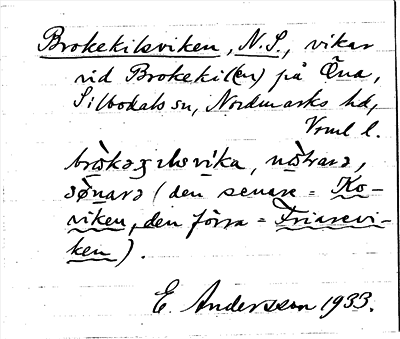 Brokekilsviken, N. S., vikar
vid Brokekil(en) på Öna,
Silbodals sn, Nordmarks hd,
Vrml l.
bròkəʒilsvika, nò̱rarə,
sø̀narə (den senare = Ko-
viken, den förra = Friarevi-
ken).
E. Andersson 1933.